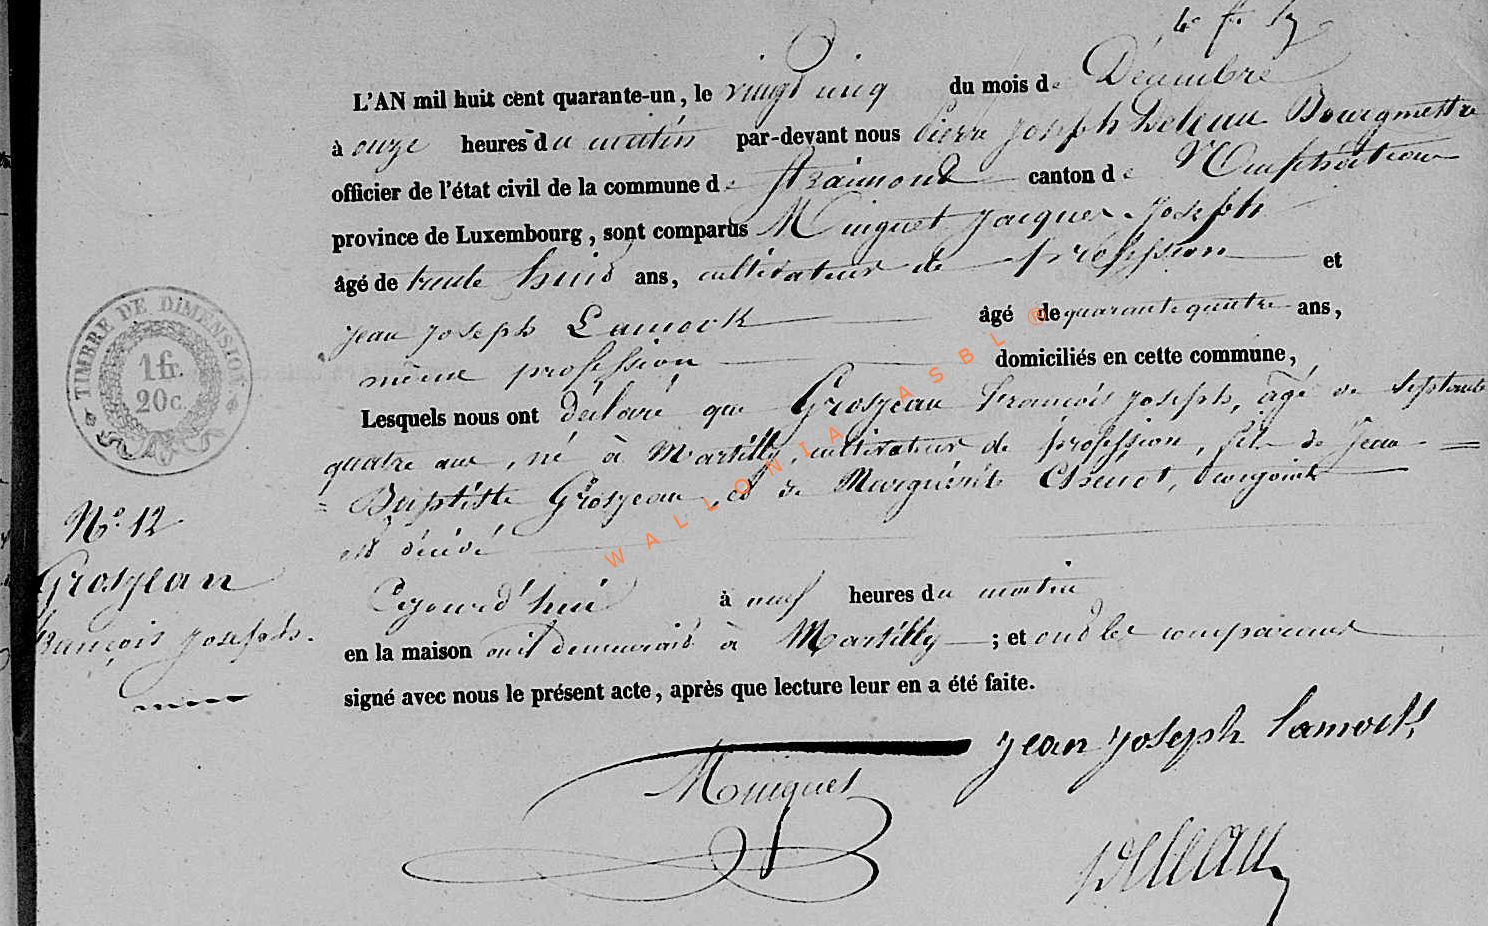 L'AN mil huit cent quarante-un, le vingt cinq du mois de Décembre
à onze heures du matin par-devant nous Pierre Joseph Deleau Bourgmestre
officier de l'état civil de la commune de Straimont canton de Neufchâteau
province de Luxembourg, sont comparus Minguet Jacques Joseph
âgé de trente huit ans, cultivateur de profession et
Jean Joseph Lamock âgé de quarante quatre ans,
même profession domiciliés en cette commune,
Lesquels nous ont déclaré que Grosjean François Joseph, âgé de septante
quatre ans, né à Martilly, cultivateur de profession, fils de Jean =
= Baptiste Grosjean, et de Marguérite Chenot,
est décédé
Cejourd'hui à neuf heures du matin
en la maison où il demeurait à Martilly ; et ont les comparans
signé avec nous le présent acte, après que lecture leur en a été faite.
TIMBRE DE DIMENSION
1 fr.
20 c.
N° 12
Grosjean
François Joseph.
Jean Joseph Lamock
Minguet
Deleau
WALLONIA ASBL ®